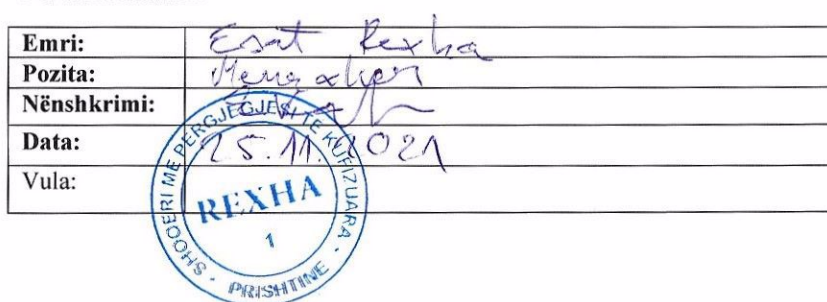 Emri: Esat Rexha
Pozita: Menaxher
Nënshkrimi:
Data: 25.11.2021
Vula:
SHOQERI ME PERGJEGJESI TE KUFIZUARA
REXHA
1
PRISHTINE